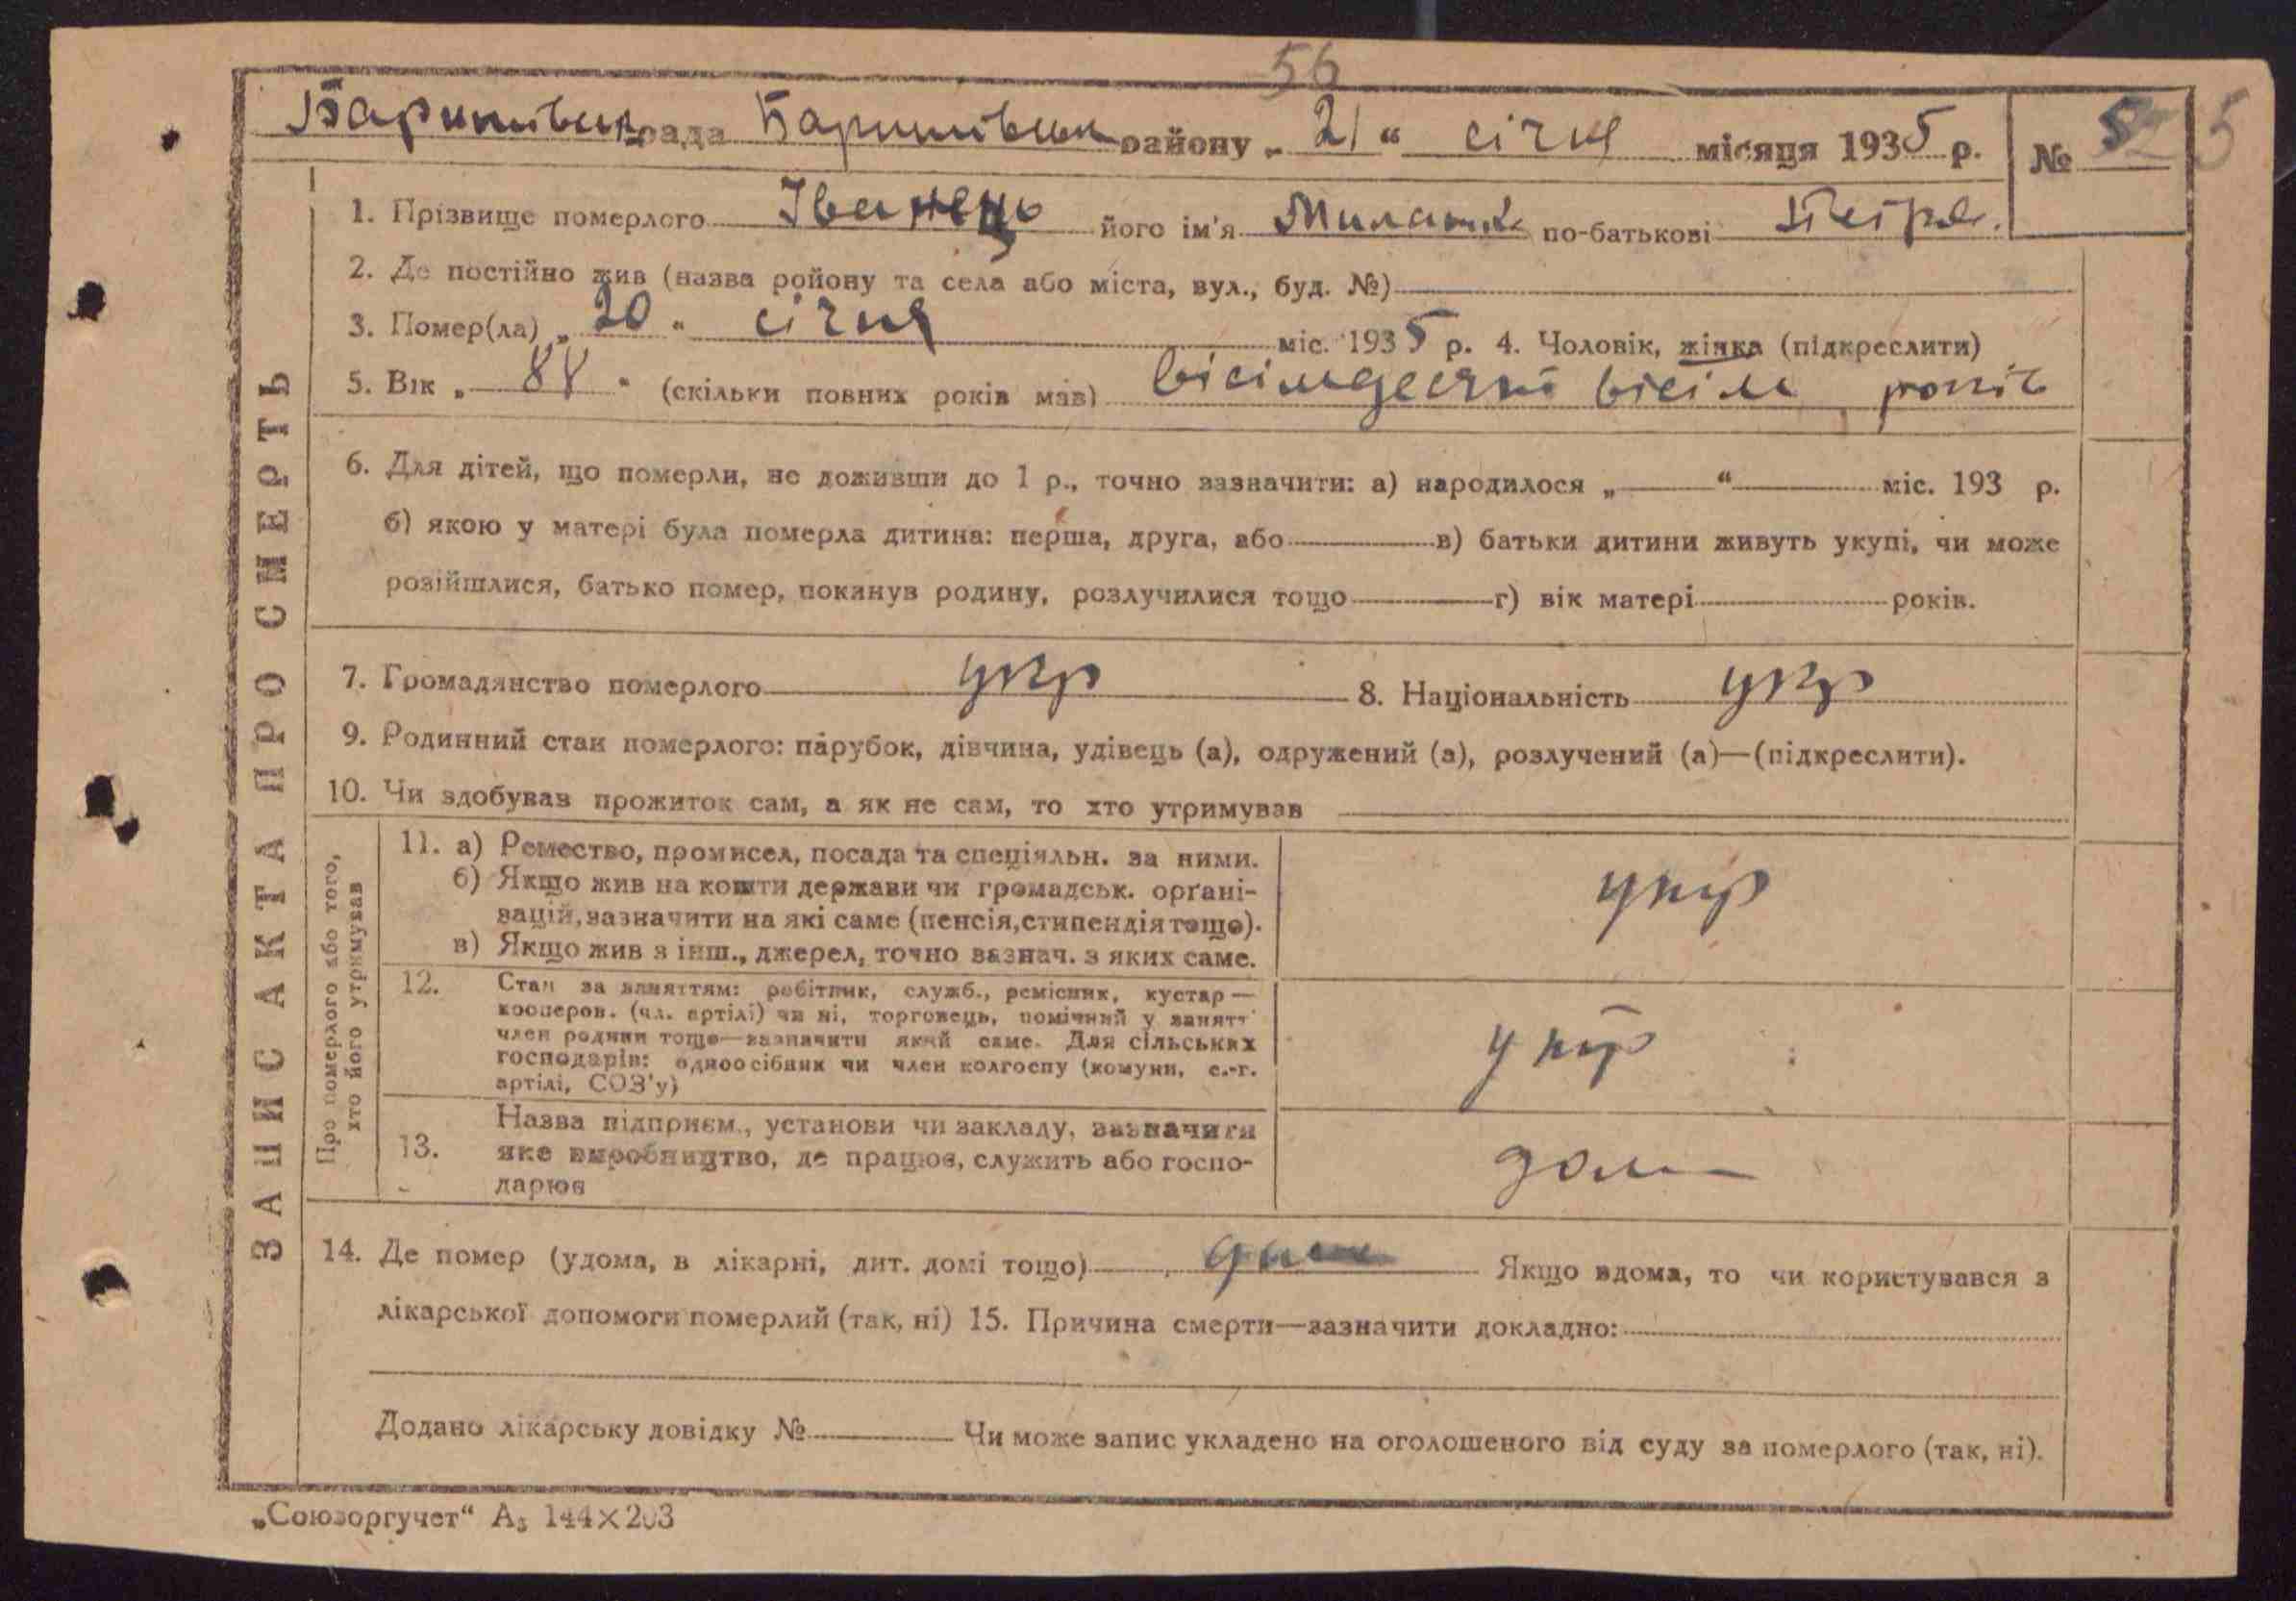 56
Баришівська рада Баришівськ району „21“ січня місяця 1935 р. № 5 5
1. Прізвище померлого Іванець його ім'я по-батькові Петр.
2. Де постійно жив (назва ройону та села або міста, вул., буд. №)
3. Помер(ла) „20“ січня міс. 1935 р. 4. Чоловік, жінка (підкреслити)
5. Вік „88“ (скільки повних років мав) вісімдесят вісім років
6. Для дітей, що померли, не доживши до 1 р., точно зазначити: а) народилося „—“ міс. 193 р.
б) якою у матері була померла дитина: перша, друга, або в) батьки дитини живуть укупі, чи може
розійшлися, батько помер, покинув родину, розлучилися тощо г) вік матері років.
7. Громадянство померлого укр 8. Національність укр
9. Родинний стан померлого: парубок, дівчина, удівець (а), одружений (а), розлучений (а)—(підкреслити).
10. Чи здобував прожиток сам, а як не сам, то хто утримував
ЗАПИС АКТА ПРО СМЕРТЬ
Про померлого або того,
хто його утримував
11. а) Ремество, промисел, посада та спеціяльн. за ними.
б) Якщо жив на кошти держави чи громадськ. орґані-
зацій, зазначити на які саме (пенсія, стипендія тощо).
в) Якщо жив з інш., джерел, точно вазнач. з яких саме.
укр
12. Стан за заняттям: робітник, служб., ремісник, кустар—
кооперов. (чл. артілі) чи ні, торговець, помічний у занятт
член родини тощо—зазначити який саме. Для сільських
господарів: одноосібник чи член колгоспу (комуни, с.-г.
артілі, СОЗ'у)
укр
13. Назва підприєм., установи чи закладу, зазначити
яке виробництво, де працює, служить або госпо-
дарює
дома
14. Де помер (удома, в лікарні, дит. домі тощо) Якщо вдома, то чи користувався з
лікарської допомоги померлий (так, ні) 15. Причина смерти—зазначити докладно:
Додано лікарську довідку № Чи може запис укладено на оголошеного від суду за померлого (так, ні).
„Союзоргучет“ А₅ 144×203